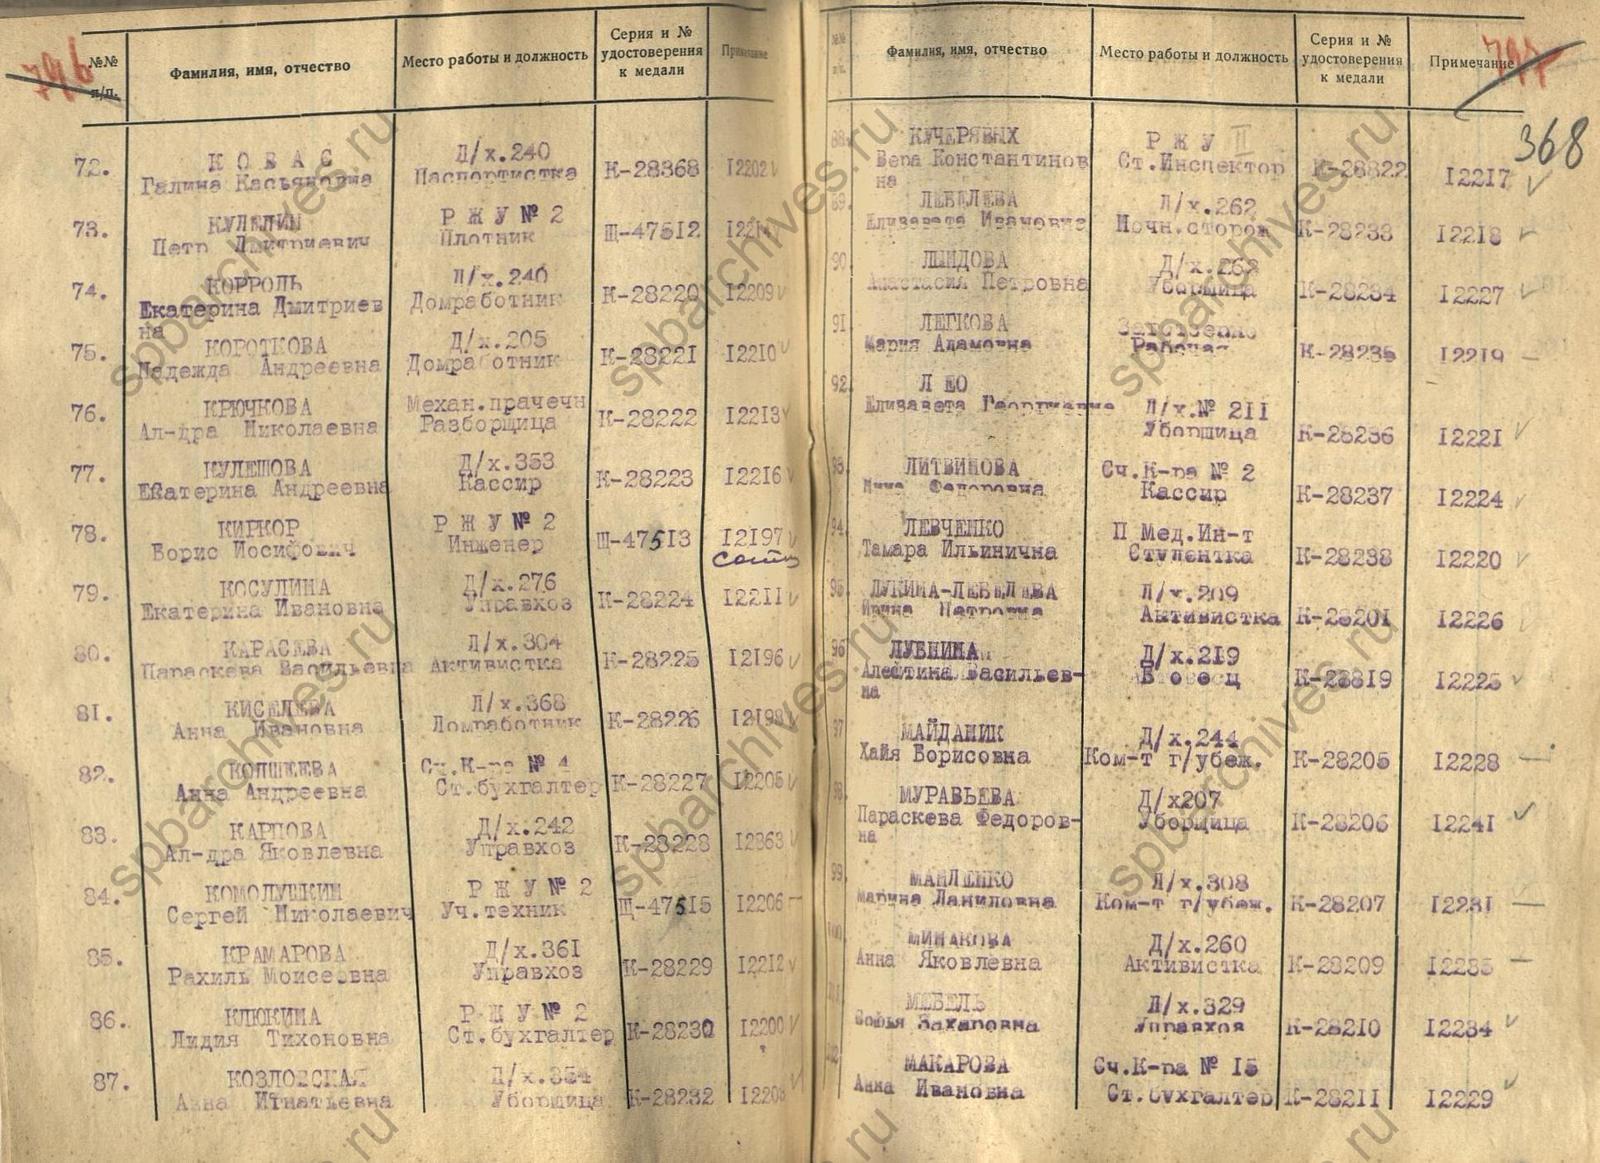 №№ п/п.
Фамилия, имя, отчество
Место работы и должность
Серия и № удостоверения к медали
Примечание
796
72. КОВАС Д/х.240 К-28368 12202
Галина Касьяновна Паспортистка
73. КУЛЕЛИН Р Ж У № 2 Щ-47512
Петр Дмитриевич Плотник
74. КОРРОЛЬ Д/х.240 К-28220 12209
Екатерина Дмитриев Домработник
на
75. КОРОТКОВА Д/х.205 К-28221 12210
Надежда Андреевна Домработник
76. КРЮЧКОВА Механ.прачечн К-28222 12213
Ал-дра Николаевна Разборщица
77. КУЛЕШОВА Д/х.353 К-28223 12216
Екатерина Андреевна Кассир
78. КИРКОР Р Ж У № 2 Щ-47513 12197
Борис Иосифович Инженер
79. КОСУЛИНА Д/х.276 К-28224 12211
Екатерина Ивановна Управхоз
80. КАРАСЕВА Д/х.304 К-28225 12196
Параскева Васильевна Активистка
81. КИСЕЛЕВА Д/х.368 К-28226 12198
Анна Ивановна Домработник
82. КОПШЕЕВА Сч.К-ра № 4 К-28227 12205
Анна Андреевна Ст.бухгалтер
83. КАРПОВА Д/х.242 К-28228 12363
Ал-дра Яковлевна Управхоз
84. КОМОЛУШКИН Р Ж У № 2 Щ-47515 12206
Сергей Николаевич Уч.техник
85. КРАМАРОВА Д/х.361 К-28229 12212
Рахиль Моисеевна Управхоз
86. КЛЮКИНА Р Ж У № 2 К-28230 12200
Лидия Тихоновна Ст.бухгалтер
87. КОЗЛОВСКАЯ Д/х.354 К-28232
Анна Игнатьевна Уборщица
Фамилия, имя, отчество
Место работы и должность
Серия и № удостоверения к медали
Примечание
368
88. КУЧЕРЯВЫХ Р Ж У II К-28822 12217
Вера Константинов Ст.Инспектор
на
89. ЛЕБЕДЕВА Д/х.262 К-28233 12218
Елизавета Ивановна Ночн.сторож
90. Д/х.262 К-28234 12227
Анастасия Петровна Уборщица
91. ЛЕГКОВА К-28235 12219
Мария Адамовна Рабочая
92. Л ЕО
Елизавета Георгиевна Д/х.№ 211
Уборщица К-28236 12221
93. ЛИТВИНОВА Сч.К-ра № 2
Федоровна Кассир К-28237 12224
94. ЛЕВЧЕНКО П Мед.Ин-т
Тамара Ильинична Студентка К-28238 12220
95. ЛУКИНА-ЛЕБЕДЕВА Д/х.209
Ирина Петровна Активистка К-28201 12226
96. ЛУБНИНА Д/х.219
Алефтина Васильев- Боец К-28819 12225
на
97. МАЙДАНИК Д/х.244
Хайя Борисовна Ком-т г/убеж. К-28205 12228
98. МУРАВЬЕВА Д/х207
Параскева Федоров- Уборщица К-28206 12241
на
99. МАНЛЕНКО Д/х.308
Марина Даниловна Ком-т г/убеж. К-28207 12231
100. МИНАКОВА Д/х.260
Анна Яковлевна Активистка К-28209 12235
101. МЕБЕЛЬ Д/х.329
Софья Захаровна Управхоз К-28210 12234
102. МАКАРОВА Сч.К-ра № 15
Анна Ивановна Ст.бухгалтер К-28211 12229
spbarchives.ru